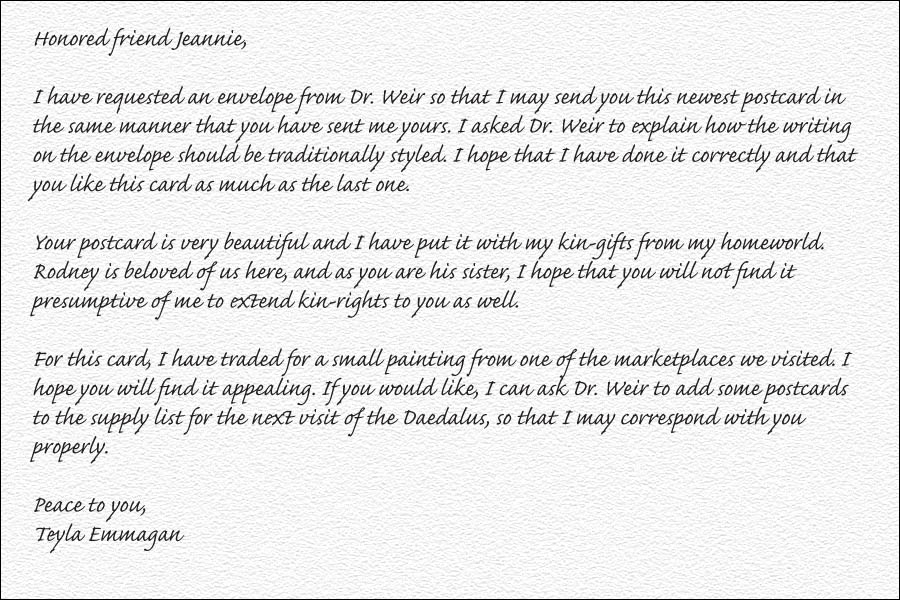 Honored friend Jeannie,
I have requested an envelope from Dr. Weir so that I may send you this newest postcard in
the same manner that you have sent me yours. I asked Dr. Weir to explain how the writing
on the envelope should be traditionally styled. I hope that I have done it correctly and that
you like this card as much as the last one.
Your postcard is very beautiful and I have put it with my kin-gifts from my homeworld.
Rodney is beloved of us here, and as you are his sister, I hope that you will not find it
presumptive of me to extend kin-rights to you as well.
For this card, I have traded for a small painting from one of the marketplaces we visited. I
hope you will find it appealing. If you would like, I can ask Dr. Weir to add some postcards
to the supply list for the next visit of the Daedalus, so that I may correspond with you
properly.
Peace to you,
Teyla Emmagan